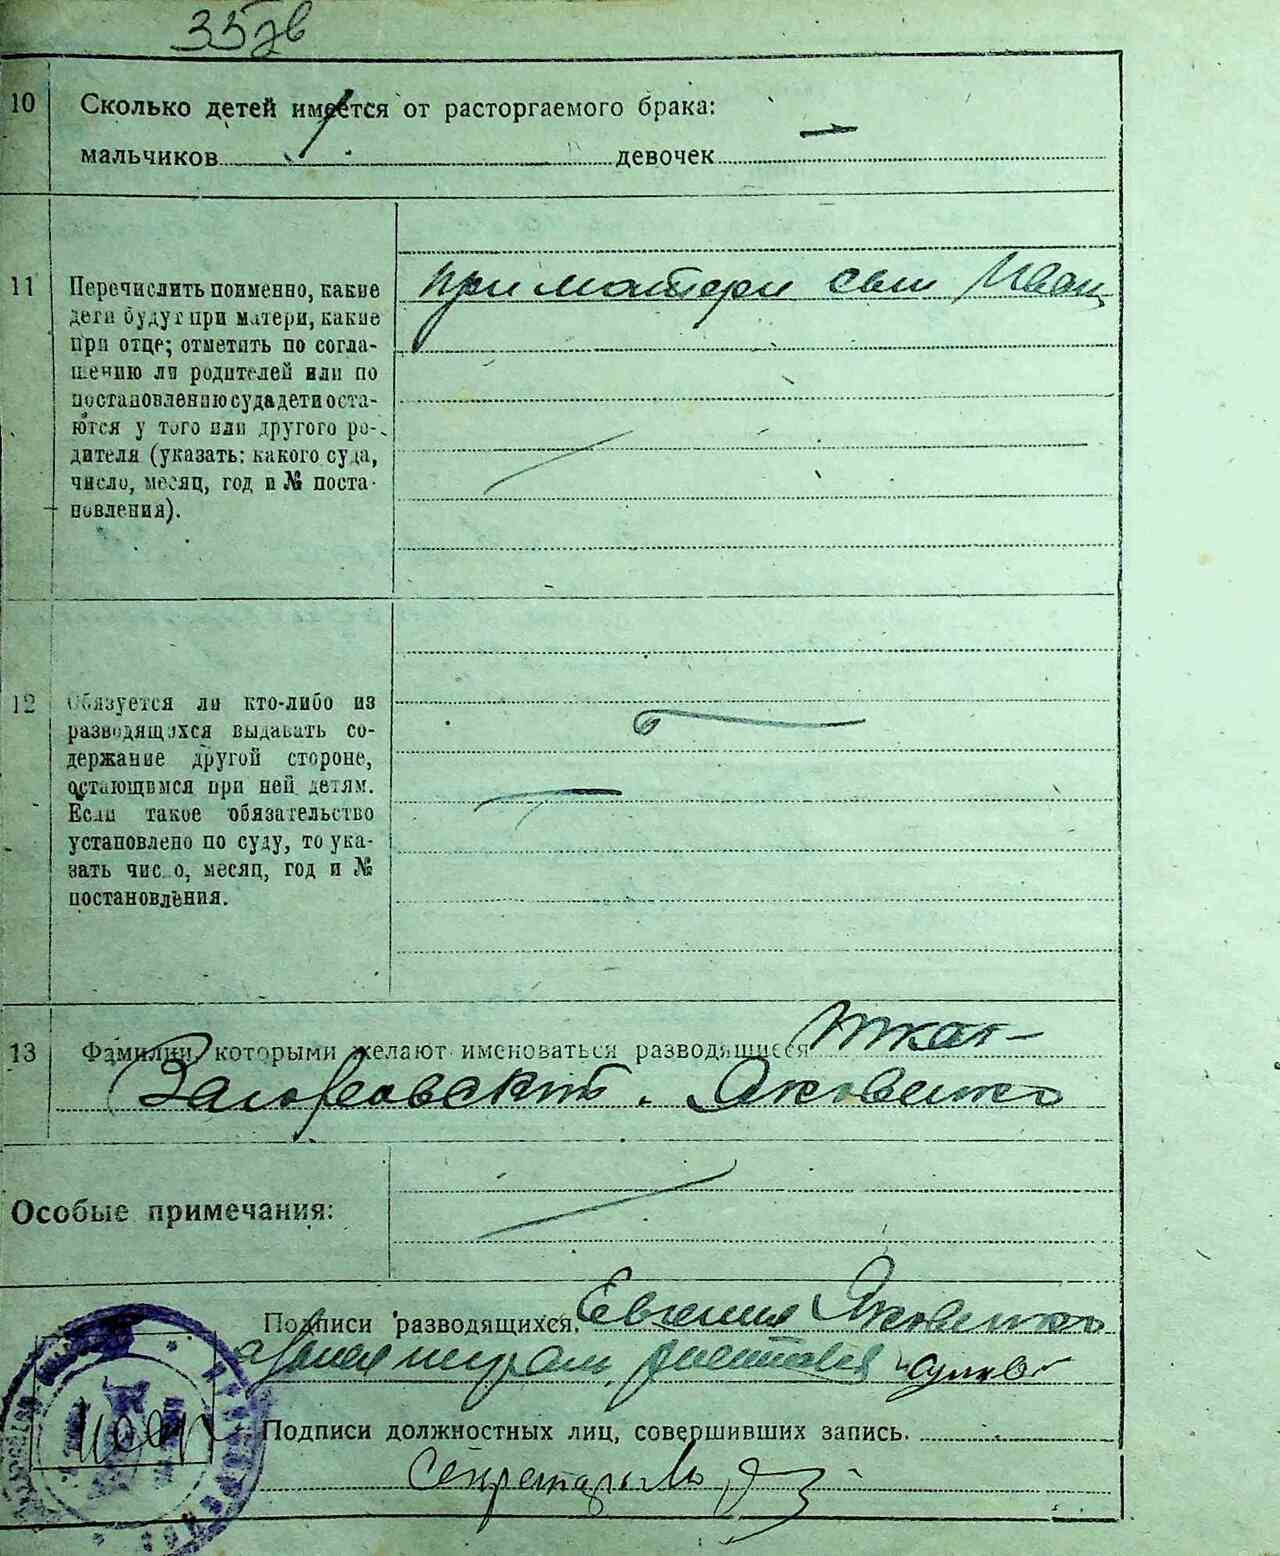 10 Сколько детей имеется от расторгаемого брака:
мальчиков 1 девочек —
11 Перечислить поименно, какие
дети будут при матери, какие
при отце; отметить по согла-
шению ли родителей или по
постановлению суда дети оста-
ются у того или другого ро-
дителя (указать: какого суда,
число, месяц, год и № поста-
новления).
при матери сын Иван
12 Обязуется ли кто-либо из
разводящихся выдавать со-
держание другой стороне,
остающимся при ней детям.
Если такое обязательство
установлено по суду, то ука-
зать число, месяц, год и №
постановления.
13 Фамилии, которыми желают именоваться разводящиеся
Яковенко
Особые примечания:
Подписи разводящихся. Евгения Яковенко
Подписи должностных лиц, совершивших запись.
Секретарь